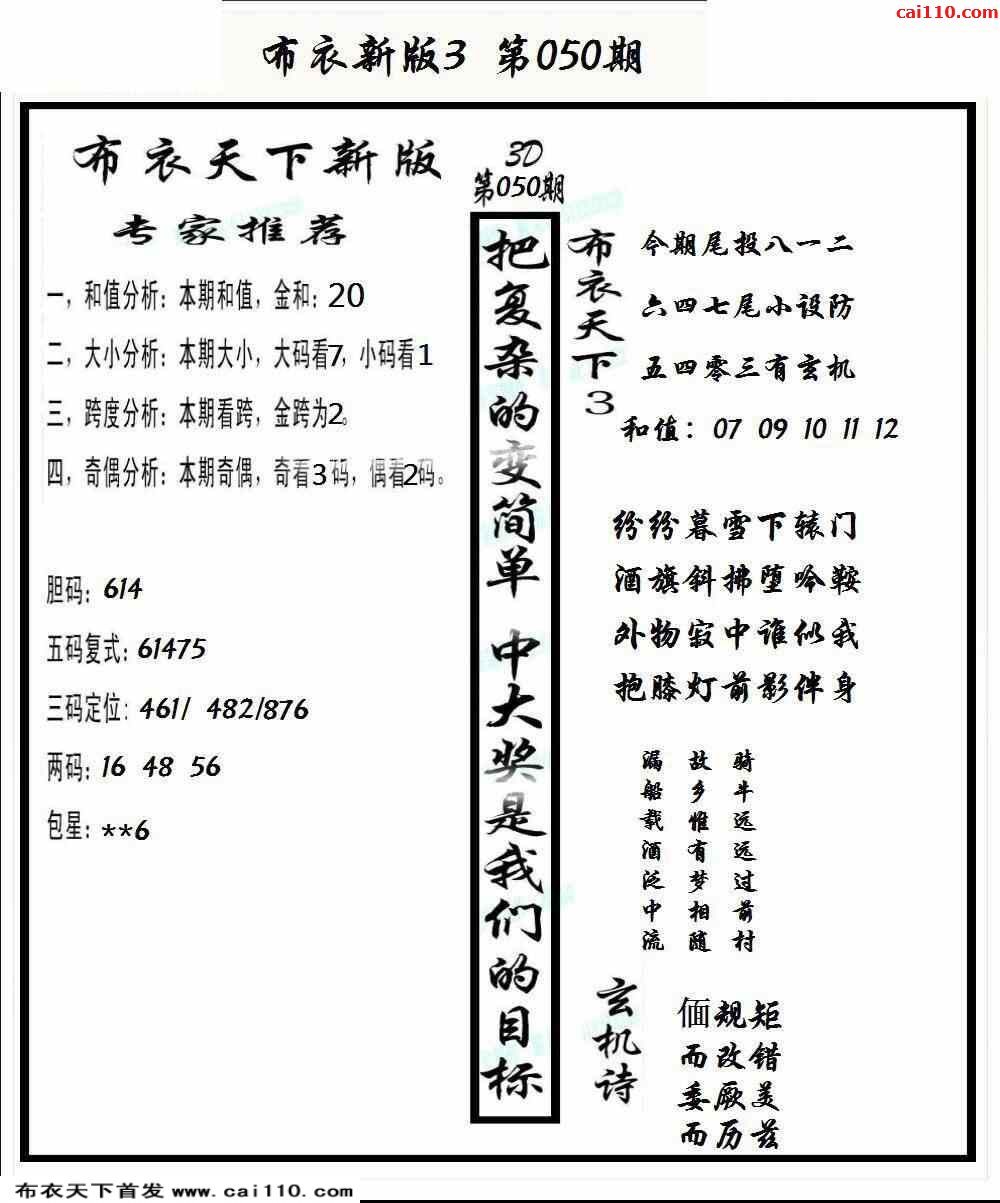 cai110.com
布衣新版3 第050期
布衣天下新版
专家推荐
一，和值分析：本期和值，金和：20
二，大小分析：本期大小，大码看7，小码看1
三，跨度分析：本期看跨，金跨为2。
四，奇偶分析：本期奇偶，奇看3码，偶看2码。
胆码：614
五码复式：61475
三码定位：461/ 482/876
两码：16 48 56
包星：**6
3D
第050期
把复杂的变简单 中大奖是我们的目标
布衣天下3
今期尾投八一二
六四七尾小设防
五四零三有玄机
和值：07 09 10 11 12
纷纷暮雪下辕门
酒旗斜拂堕吟鞍
外物寂中谁似我
抱膝灯前影伴身
骑牛远远过前村
故乡惟有梦相随
漏船载酒泛中流
玄机诗
偭规矩
而改错
委厥美
而历兹
布衣天下首发 www.cai110.com